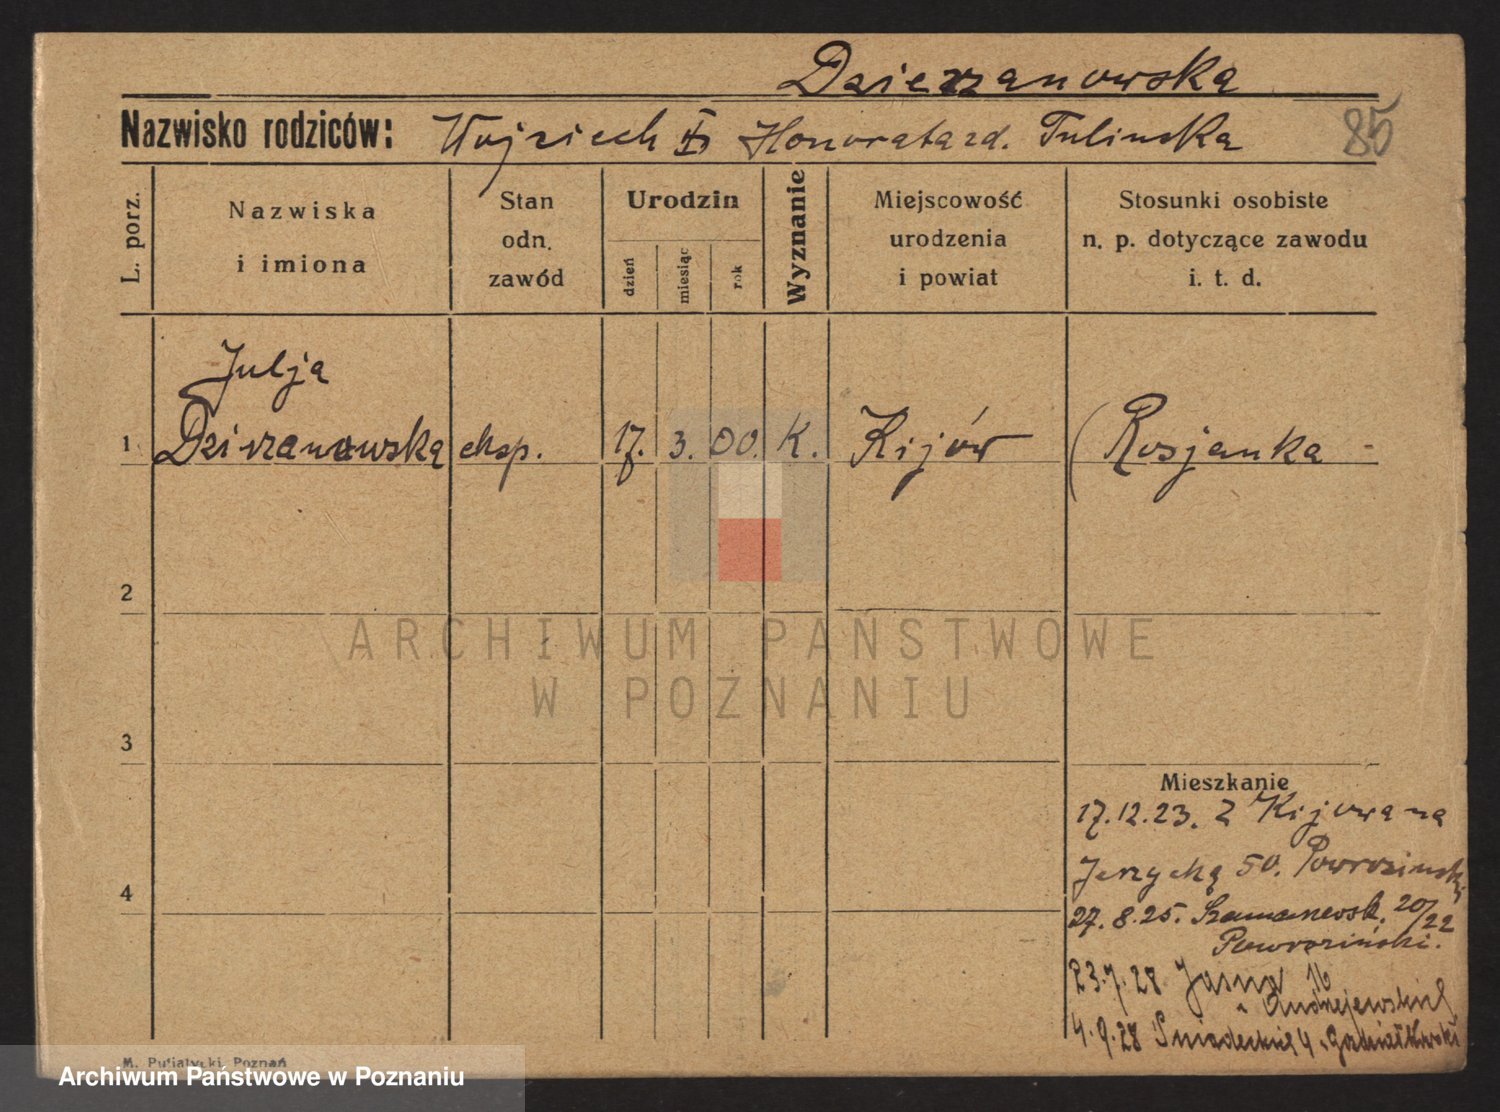 Dzierzanowska
Nazwisko rodziców: Wojciech i Honorata zd. Tulinska 85
L. porz.
Nazwiska
i imiona
Stan
odn.
zawód
Urodzin
dzień
miesiąc
rok
Wyznanie
Miejscowość
urodzenia
i powiat
Stosunki osobiste
n. p. dotyczące zawodu
i. t. d.
Julja
1 Dzierzanowska eksp. 17. 3. 00. K. Kijów (Rosjanka -
2
3
4
Mieszkanie
17.12.23. z Kijowa na
50. Powrozinski
27.8.25. 20/22
Powroziński.
23.7.28 Jasna 16
4.9.28 Śniadeckich 4
M. Putiatycki, Poznań
ARCHIWUM PAŃSTWOWE
W POZNANIU
Archiwum Państwowe w Poznaniu